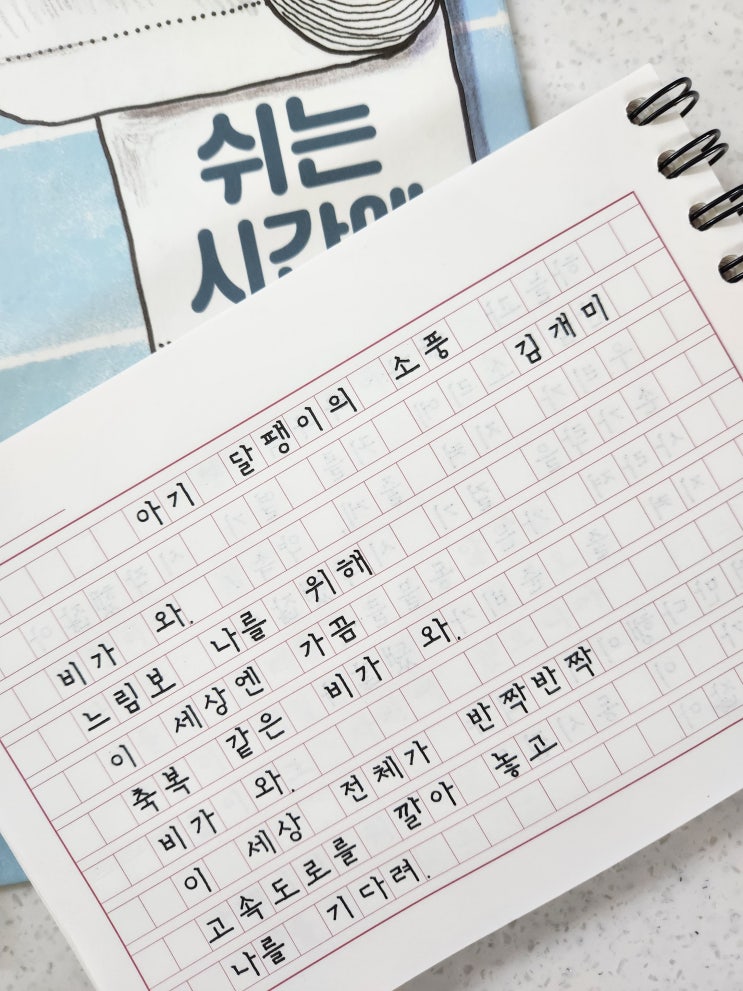 쉬는
시간에
아기 달팽이의 소풍
김개미
비가 와.
느림보 나를 위해
이 세상엔 가끔
축복 같은 비가 와.
비가 와.
이 세상 전체가 반짝반짝
고속도로를 깔아 놓고
나를 기다려.